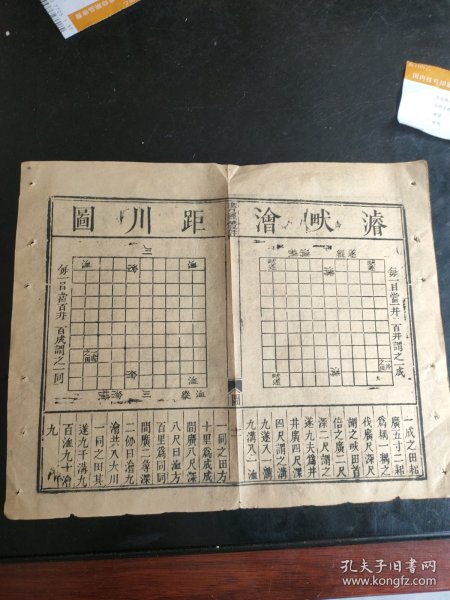 濬畎澮距川圖
每一目當一井百井謂之一成
每一目當百井百成謂之一同
一成之田耜
廣五寸二耜
爲耦一耦之
伐廣尺深尺
謂之畎田首
倍之廣二尺
深二尺謂之
遂九夫爲井
井廣四尺深
四尺謂之溝
九遂入一溝
九溝入一洫
一同之田方
十里爲成成
間廣八尺深
八尺曰洫方
百里爲同同
間廣二尋深
二仞曰澮九
澮共入大川
一同之田其
遂九千溝九
百洫九十澮
九
孔夫子旧书网
www.kongfz.com